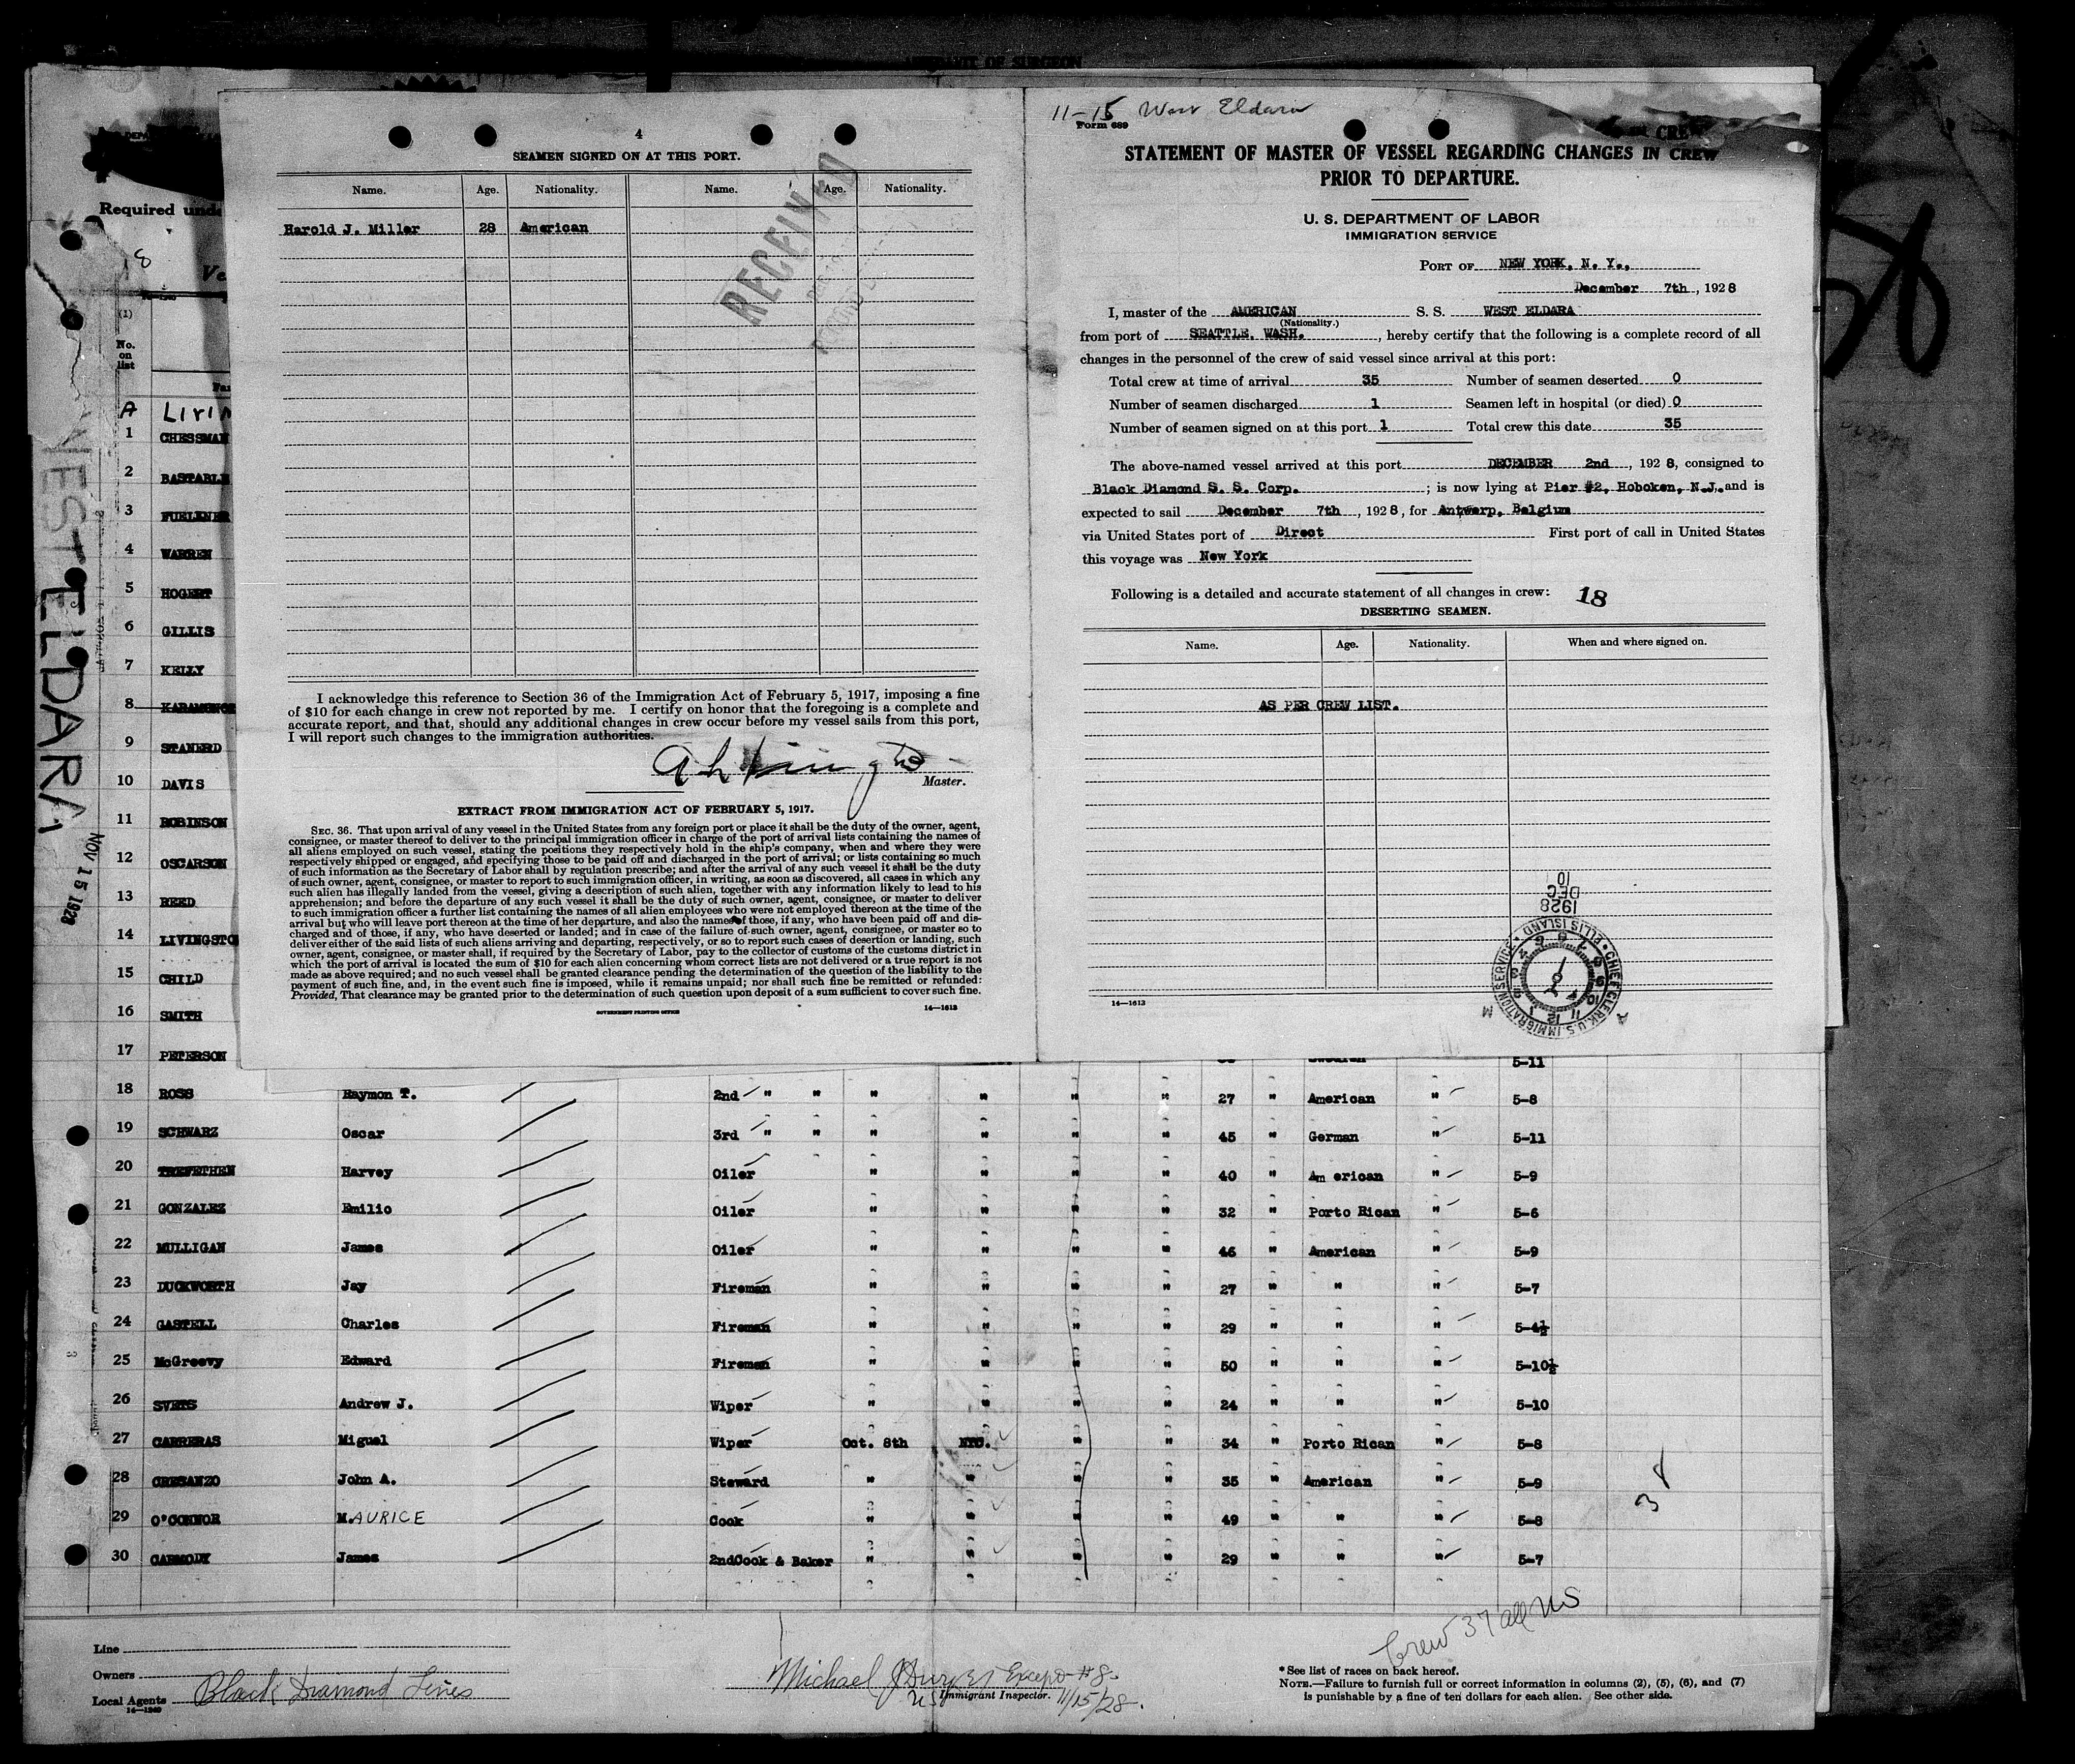 AFFIDAVIT OF SURGEON
Required unde
8
Ve
(1)
No.
on
list
Fa
4
SEAMEN SIGNED ON AT THIS PORT.
Name. Age. Nationality. Name. Age. Nationality.
Harold J. Miller 28 American
RECEIVED
I acknowledge this reference to Section 36 of the Immigration Act of February 5, 1917, imposing a fine
of $10 for each change in crew not reported by me. I certify on honor that the foregoing is a complete and
accurate report, and that, should any additional changes in crew occur before my vessel sails from this port,
I will report such changes to the immigration authorities.
Master.
EXTRACT FROM IMMIGRATION ACT OF FEBRUARY 5, 1917.
SEC. 36. That upon arrival of any vessel in the United States from any foreign port or place it shall be the duty of the owner, agent,
consignee, or master thereof to deliver to the principal immigration officer in charge of the port of arrival lists containing the names of
all aliens employed on such vessel, stating the positions they respectively hold in the ship's company, when and where they were
respectively shipped or engaged, and specifying those to be paid off and discharged in the port of arrival; or lists containing so much
of such information as the Secretary of Labor shall by regulation prescribe; and after the arrival of any such vessel it shall be the duty
of such owner, agent, consignee, or master to report to such immigration officer, in writing, as soon as discovered, all cases in which any
such alien has illegally landed from the vessel, giving a description of such alien, together with any information likely to lead to his
apprehension; and before the departure of any such vessel it shall be the duty of such owner, agent, consignee, or master to deliver
to such immigration officer a further list containing the names of all alien employees who were not employed thereon at the time of the
arrival but who will leave port thereon at the time of her departure, and also the names of those, if any, who have been paid off and dis-
charged and of those, if any, who have deserted or landed; and in case of the failure of such owner, agent, consignee, or master so to
deliver either of the said lists of such aliens arriving and departing, respectively, or so to report such cases of desertion or landing, such
owner, agent, consignee, or master shall, if required by the Secretary of Labor, pay to the collector of customs of the customs district in
which the port of arrival is located the sum of $10 for each alien concerning whom correct lists are not delivered or a true report is not
made as above required; and no such vessel shall be granted clearance pending the determination of the question of the liability to the
payment of such fine, and, in the event such fine is imposed, while it remains unpaid; nor shall such fine be remitted or refunded:
Provided, That clearance may be granted prior to the determination of such question upon deposit of a sum sufficient to cover such fine.
GOVERNMENT PRINTING OFFICE 14—1613
11-15 West Eldara
Form 689
CREW
STATEMENT OF MASTER OF VESSEL REGARDING CHANGES IN CREW
PRIOR TO DEPARTURE.
U. S. DEPARTMENT OF LABOR
IMMIGRATION SERVICE
PORT OF NEW YORK, N. Y.,
December 7th, 1928
I, master of the AMERICAN S. S. WEST ELDARA
(Nationality.)
from port of SEATTLE, WASH., hereby certify that the following is a complete record of all
changes in the personnel of the crew of said vessel since arrival at this port:
Total crew at time of arrival 35 Number of seamen deserted 0
Number of seamen discharged 1 Seamen left in hospital (or died) 0
Number of seamen signed on at this port 1 Total crew this date 35
The above-named vessel arrived at this port DECEMBER 2nd, 1928, consigned to
Black Diamond S. S. Corp.; is now lying at Pier #2, Hoboken, N.J. and is
expected to sail December 7th, 1928, for Antwerp, Belgium
via United States port of Direct First port of call in United States
this voyage was New York
Following is a detailed and accurate statement of all changes in crew: 18
DESERTING SEAMEN.
Name. Age. Nationality. When and where signed on.
AS PER CREW LIST.
1928
DEC
10
CHIEF CLERK U.S. IMMIGRATION SERVICE • ELLIS ISLAND
14—1613
WEST ELDARA
NOV 15 1928
A LIVIN
1 CHESSMAN
2 BASTABLE
3 FUELKNER
4 WARREN
5 HOGERT
6 GILLIS
7 KELLY
8
9 STANERD
10 DAVIS
11 ROBINSON
12 OSCARSON
13 REED
14 LIVINGSTO
15 CHILD
16 SMITH
17 PETERSON Swedish 5-11
18 ROSS Raymon T. 2nd " " " " " " 27 " American " 5-8
19 SCHWARZ Oscar 3rd " " " " " " 45 " German " 5-11
20 TREFETHEN Harvey Oiler " " " " 40 " Am erican " 5-9
21 GONZALEZ Emilio Oiler " " " " 32 " Porto Rican " 5-6
22 MULLIGAN James Oiler " " " " 46 " American " 5-9
23 DUCKWORTH Jay Fireman " " " " 27 " " " 5-7
24 GASTELL Charles Fireman " " " " 29 " " " 5-4½
25 McGreevy Edward Fireman " " " " 50 " " " 5-10½
26 SVETS Andrew J. Wiper " " " " 24 " " " 5-10
27 CARRERAS Miguel Wiper Oct. 8th NYC. " " 34 " Porto Rican " 5-8
28 CRESANZO John A. Steward " " " " 35 " American " 5-9
29 O'CONNOR MAURICE Cook " " " " 49 " " " 5-8
30 CARMODY James 2ndCook & Baker " " " " 29 " " " 5-7
38
Crew 37 all US
Line
Owners
Local Agents Black Diamond Lines
14—1240
Michael Except #8.
US Immigrant Inspector. 11/15/28.
* See list of races on back hereof.
NOTE.—Failure to furnish full or correct information in columns (2), (5), (6), and (7)
is punishable by a fine of ten dollars for each alien. See other side.